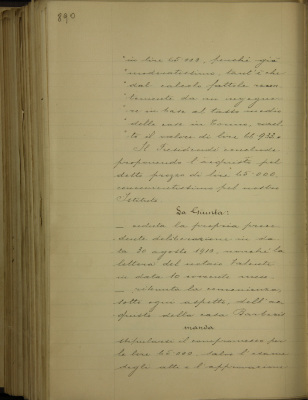 890
"in lire 65.000, perchè già
"moderatissimo, tant'è che
"dal calcolo fattole
"da un ingegne-
"re in base al tasso medio
"delle case in
"to il valore di lire
Il Presidente conclude
proponendo l'acquisto pel
detto prezzo di lire 65.000,
convenientissimo pel nostro
Istituto.
La Giunta:
— veduta la propria prece-
dente deliberazione in da-
ta 30 agosto 1912, nonchè la
lettera del notaio Valente
in data 16 corrente mese
— ritenuta la convenienza,
sotto ogni aspetto, dell'ac-
quisto della casa
manda
stipularsi il compromesso per
le lire 65.000, salvo l'esame
degli atti e l'approvazione